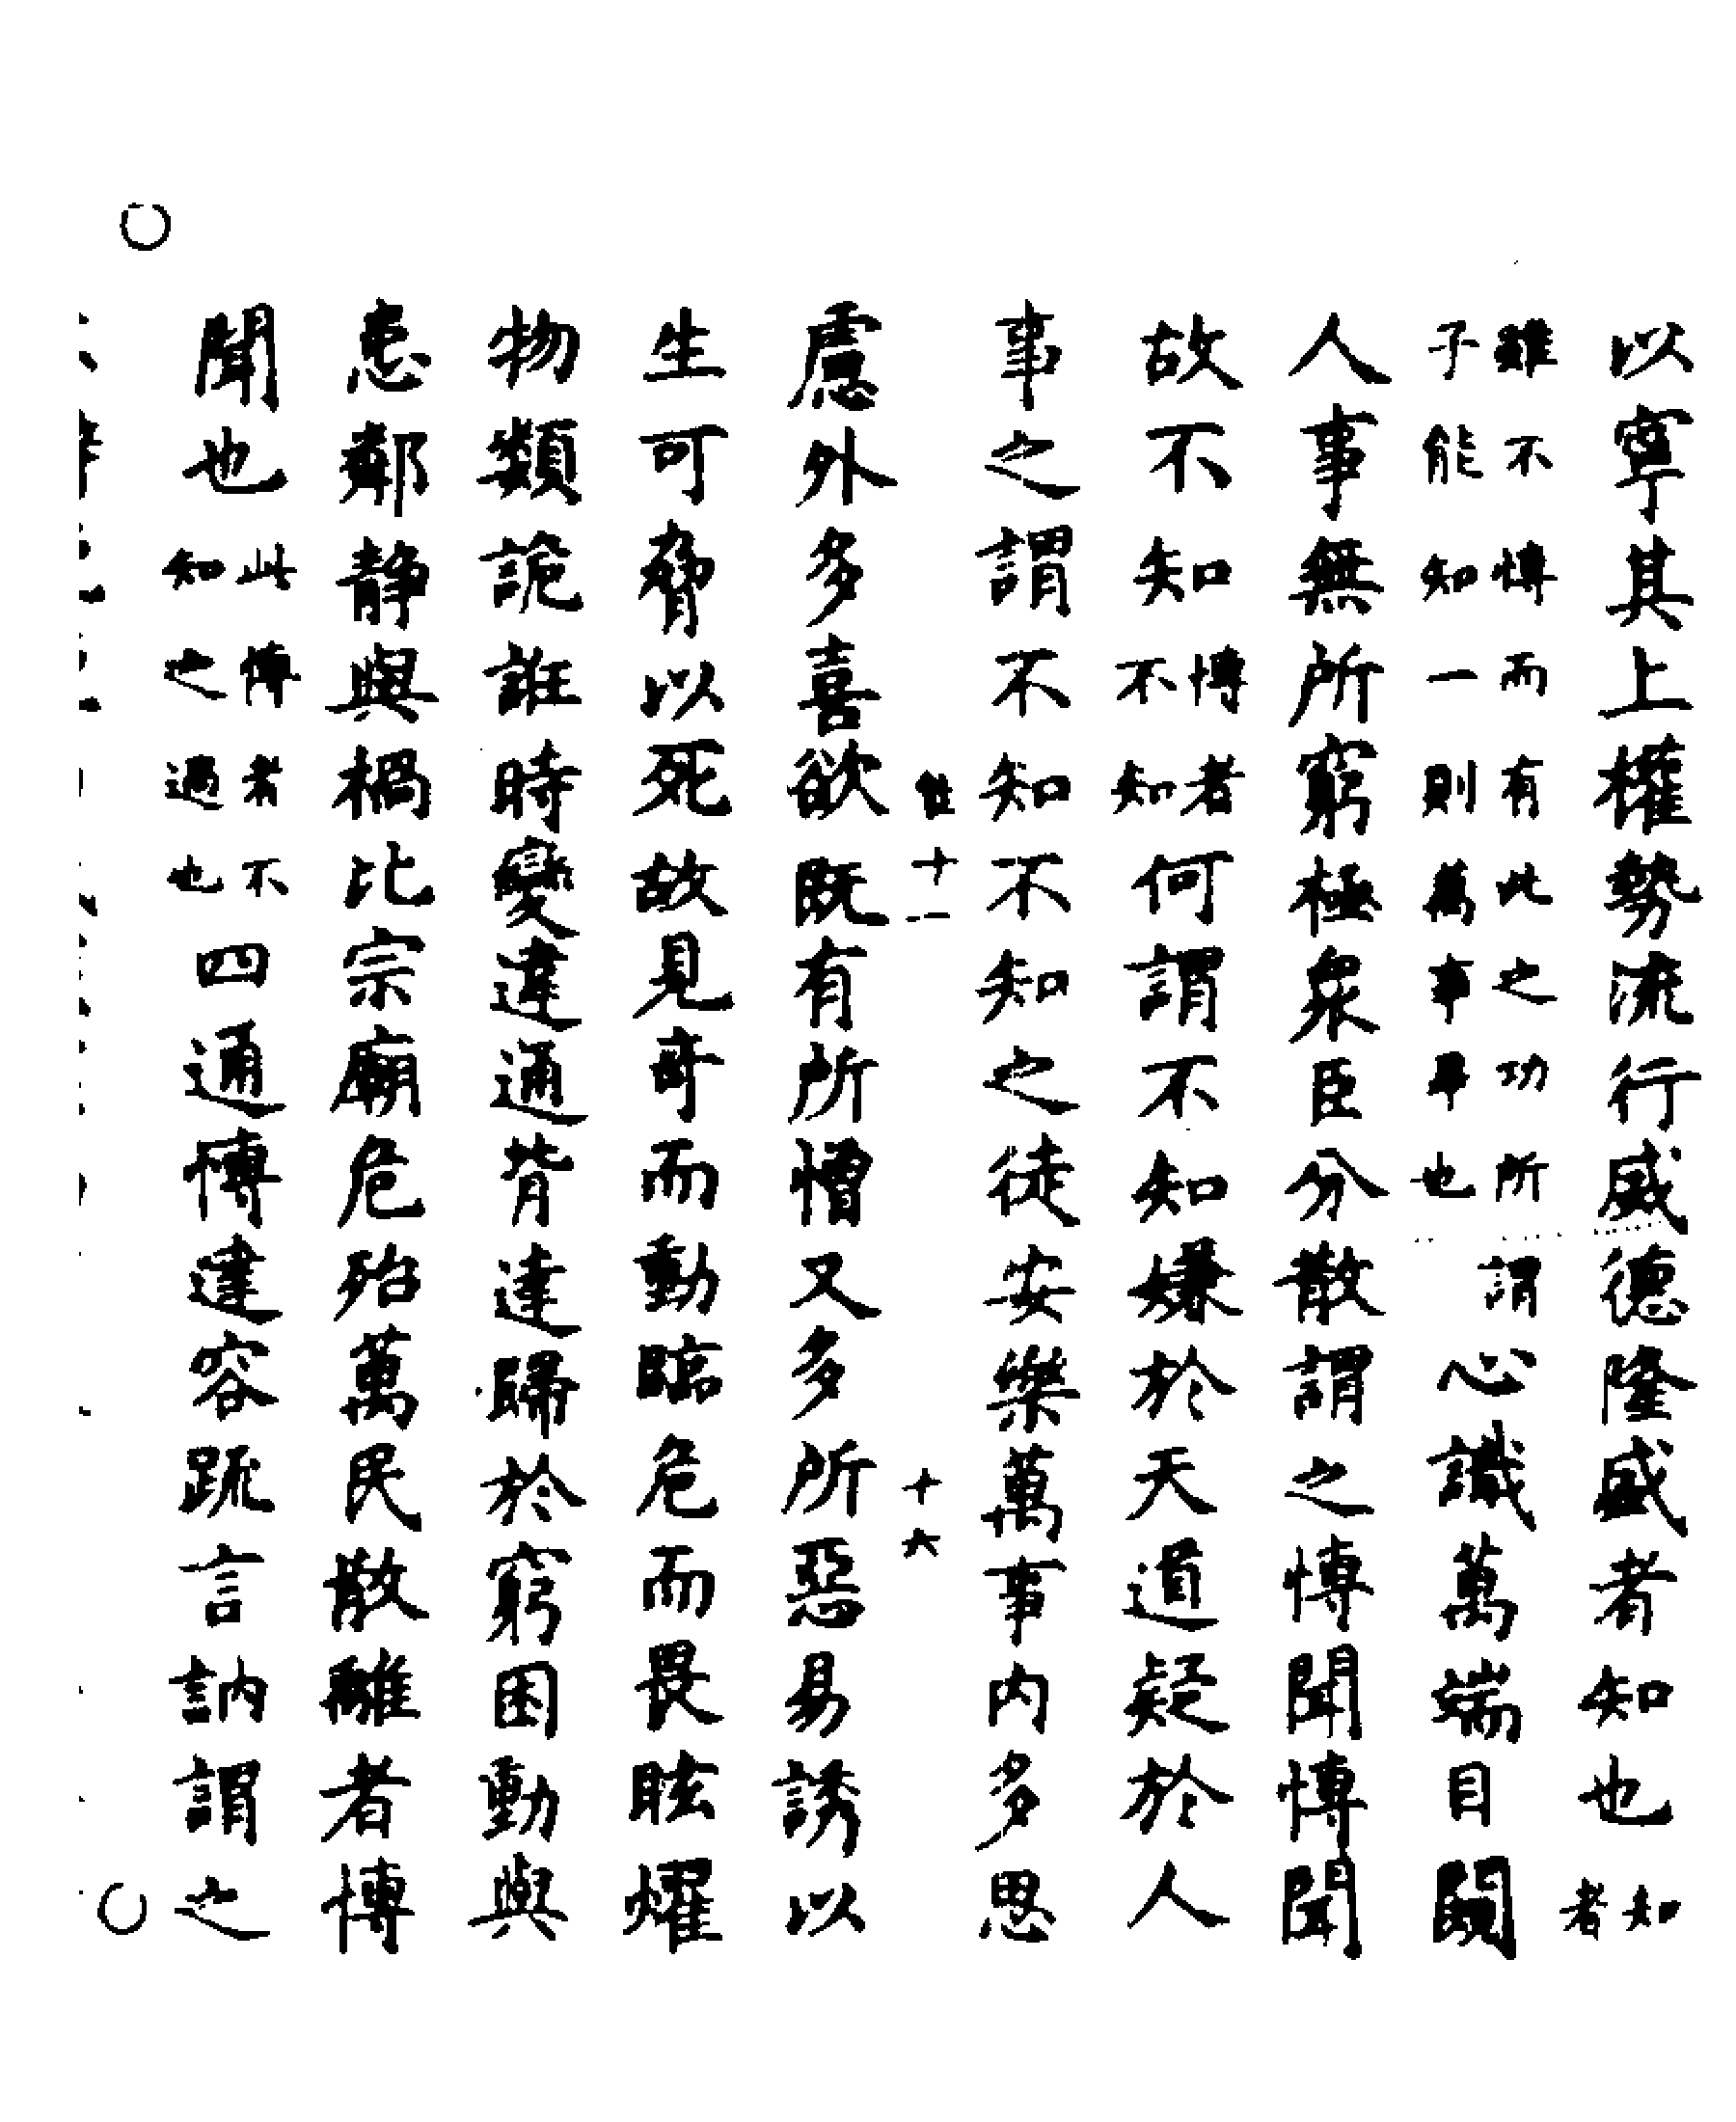 以寧其上權勢流行威德隆盛者知也知者
雖不博而有此之功所謂子能知一則萬事畢也心識萬端目闚
人事無所窮極衆臣分散謂之博聞博聞
故不知博者不知何謂不知嫌於天道疑於人
事之謂不知不知之徒安樂萬事内多思
十一
十六
慮外多喜欲既有所憎又多所惡易誘以
生可脅以死故見奇而動臨危而畏眩燿
物類詭誑時變違通背達歸於窮困動與
患鄰静與禍比宗廟危殆萬民散離者博
聞也此博者不知之過也四通博達容疏言訥謂之